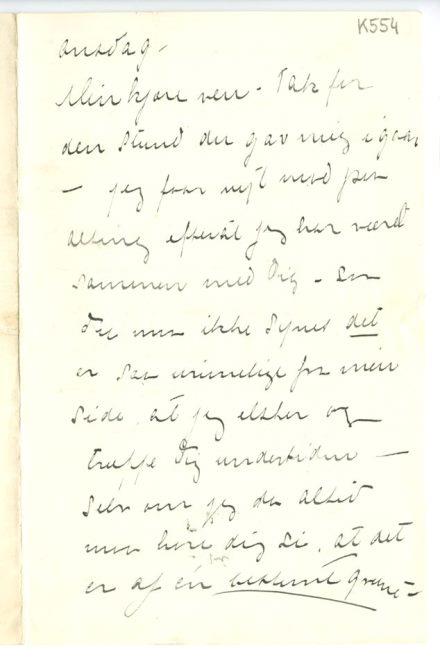 K554
onsdag -
Min kjære ven - Tak for
den stund du gav mig igaar
- jeg faar nyt mod paa
alting efterat jeg har været
sammen med Dig - saa
Du maa ikke synes det
er saa urimelige fra min
side, at jeg elsker og
træffe Dig undertiden -
selv om jeg da altid
maa høre dig si, at det
er af én bestemt grund -